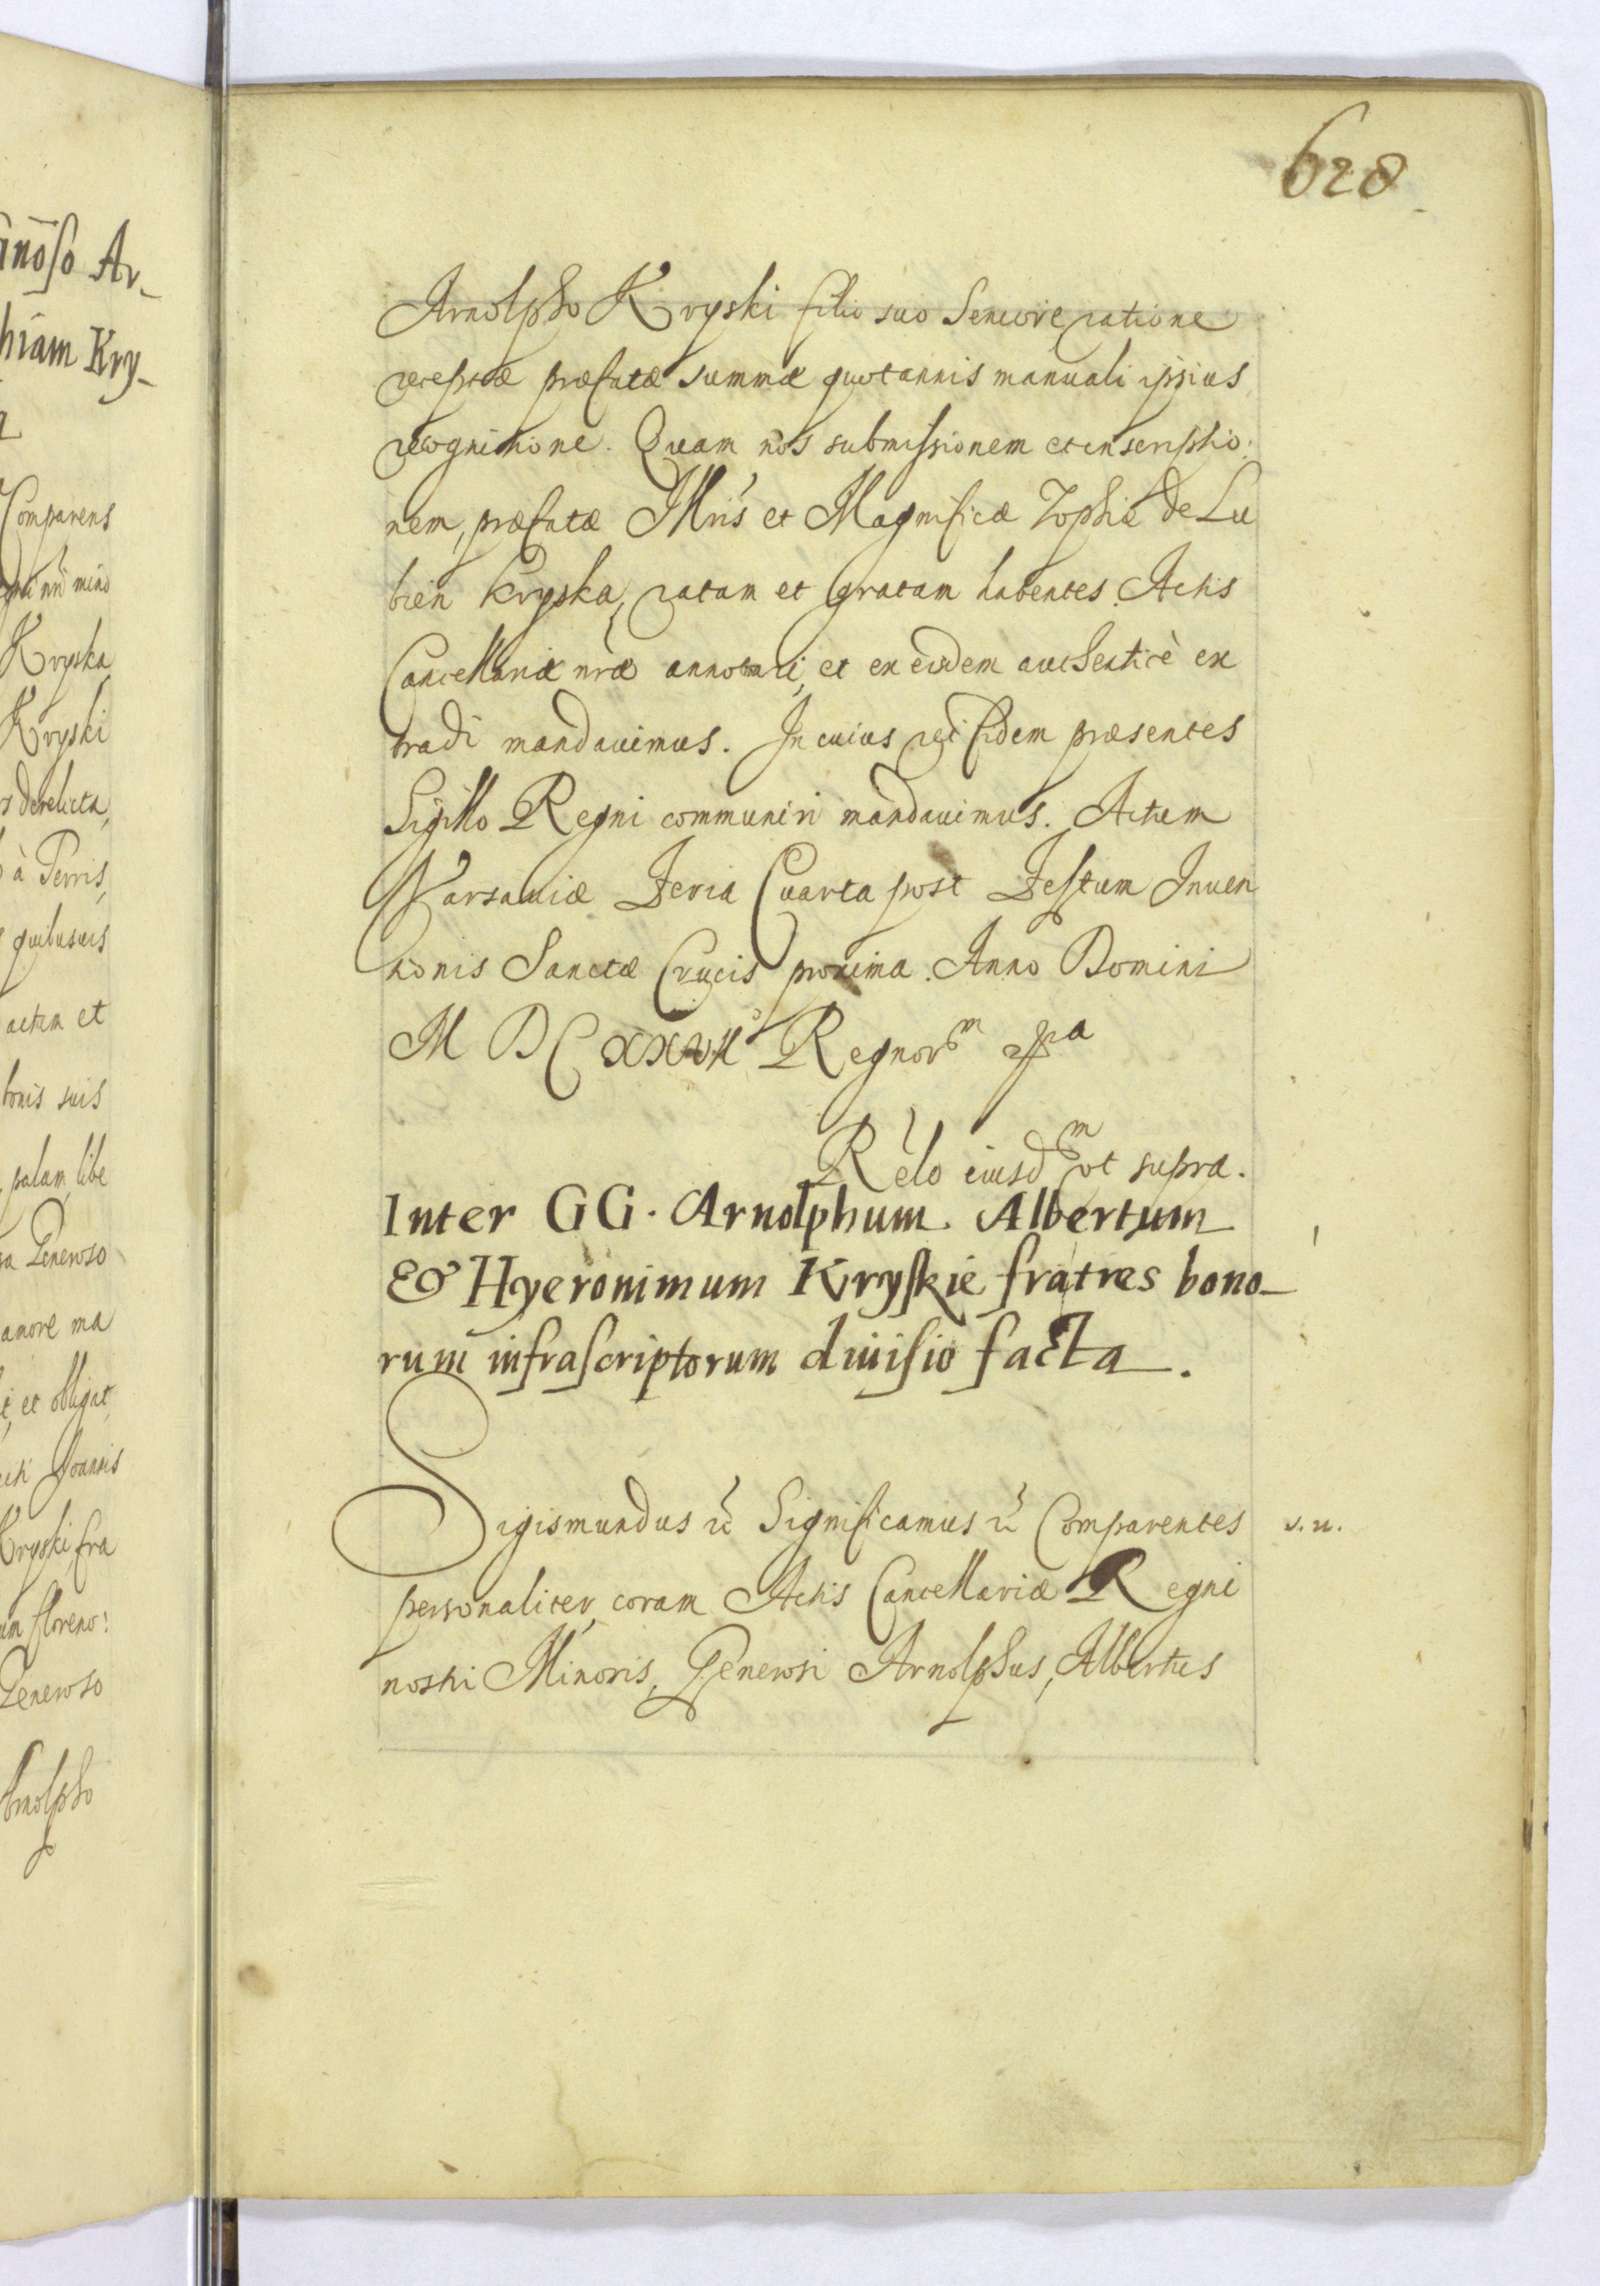 inoso Ar-
hiam Kry-
Comparens
Kryska
Kryski
derelicta,
à Terris,
quibusuis
actum et
bonis suis
palam, libe
Generoso
amore ma
et obligat
Joannis
Kryski fra
um floreno:
Generoso
Arnolpho
628
Arnolpho Kryski filio suo Seniore ratione
receptæ præfatæ summæ quotannis manuali ipsius
recognitione. Quam nos submissionem et inscriptio:
nem, præfatæ Illris et Magnificæ Zophiæ de Lu
bien Kryska, ratam et gratam habentes Actis
Cancellariæ nræ annotari, et ex eisdem authenticè ex
tradi mandauimus. In cuius rei fidem præsentes
Sigillo Regni communiri mandauimus. Actum
Varsauiæ Feria Quarta post Festum Inuen
tionis Sanctæ Crucis proxima. Anno Domini
M D C XXVII Regnorm
Relo eiusdm ut supra.
Inter GG. Arnolphum Albertum
& Hyeronimum Kryskie fratres bono-
rum infrascriptorum diuisio facta.
Sigismundus rc Significamus rc Comparentes s. n.
personaliter coram Actis Cancellariæ Regni
nostri Minoris, Generosi Arnolphus, Albertus